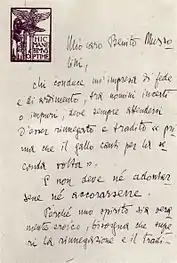 HIC
MANE
BIMUS
OPTIME
Mio caro Benito Musso
lini,
chi conduce un'impresa di fede
e di ardimento, tra uomini incerti
o impuri, deve sempre attendersi
d'esser rinnegato e tradito « pri
ma che il gallo canti per la se
conda volta ».
E non deve né adontar
sene né accorarsene.
Perché uno spirito sia vera
mente eroico, bisogna che supe
ri la rinnegazione e il tradi